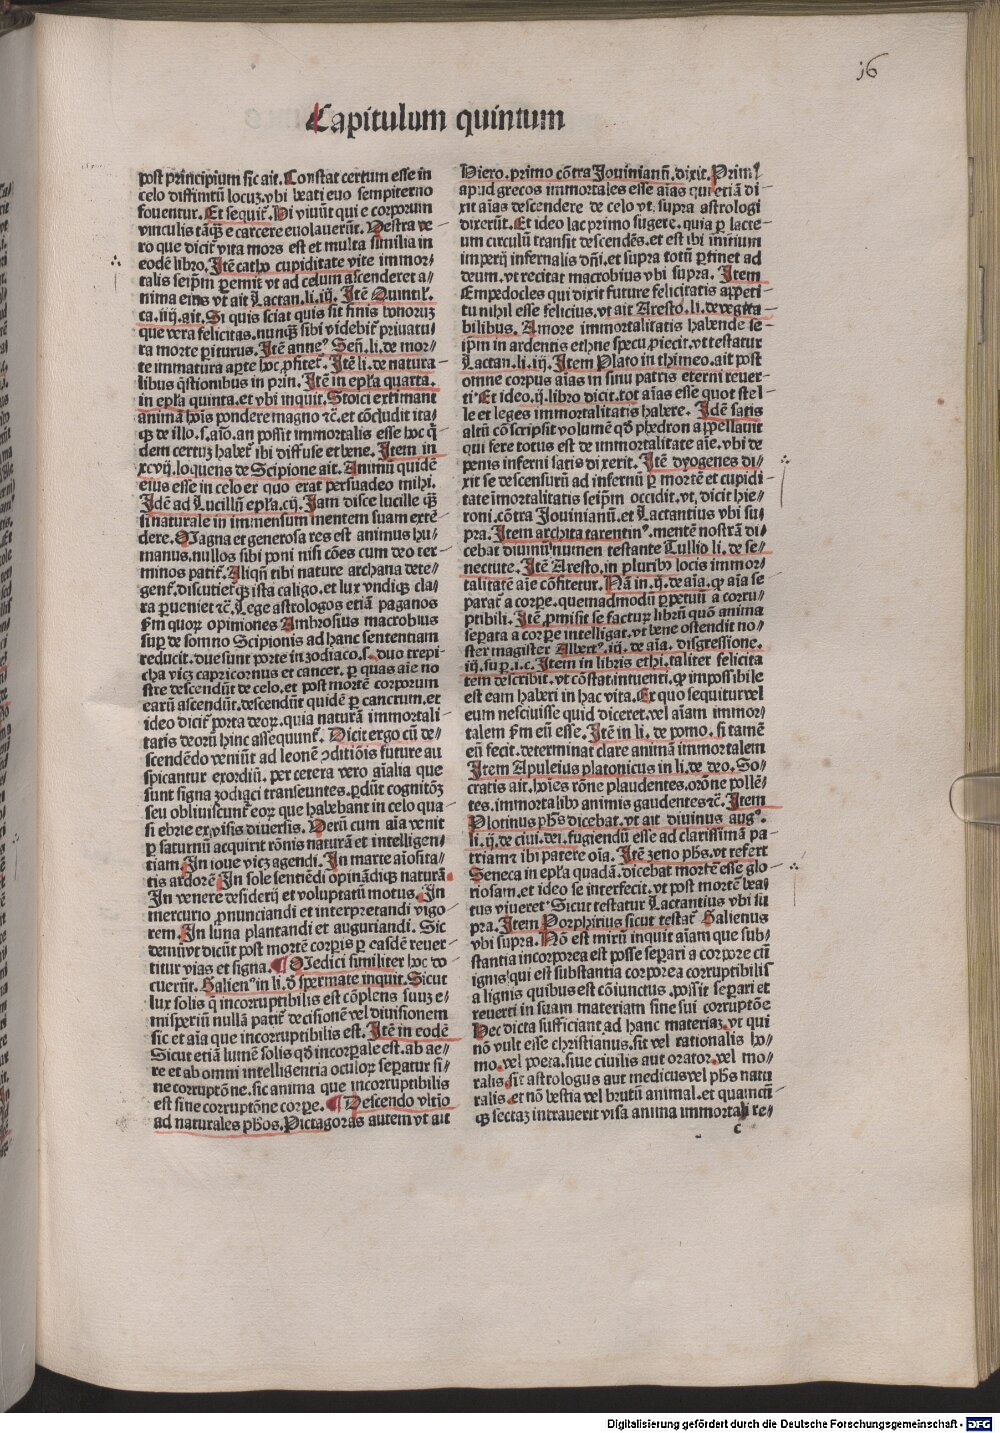 16
Capitulum quintum
post principium sic ait. Constat certum esse in
celo diffinitũ locuꝫ. vbi beati euo sempiterno
fouentur. Et sequit᷑. Hi viuũt qui e corporum
vinculis tãqꝫ e carcere euolauerũt. Uestra ve
ro que dicit᷑ vita mors est et multa similia in
eodē libro. Itē catho cupiditate vite immor⸗
talis seip̄m ꝑemit vt ad celum ascenderet a⸗
nima eius vt ait Lactan. li. iij. Itē Quintil'.
ca. iiij. ait. Si quis sciat quis sit finis bonoruꝫ
que vera felicitas. nunqꝫ̃ sibi videbit᷑ priuatu⸗
ra morte ꝑiturus. Itē anneꝰ Señ. li. de mor⸗
te immatura apte hoc ꝓfitet᷑. Itē li. de natura⸗
libus q̄stionibus in prin. Itē in epl̄a quarta.
in epl̄a quinta. et vbi inquit. Stoici extimant
animã hoīs pondere magno ⁊c̃. et cõcludit ita⸗
qꝫ de illo. s. aīo. an possit immortalis esse hoc q̄
dem certuꝫ habet᷑ ibi diffuse et bene. Item in
xcvij. loquens de Scipione ait. Animũ quidē
eius esse in celo ex quo erat persuadeo mihi.
Idē ad Lucillũ epl̄a. cij. Iam disce lucille qꝫ̃
si naturale in immensum mentem suam extē⸗
dere. Magna et generosa res est animus hu⸗
manus. nullos sibi poni nisi cões cum deo ter⸗
minos patit᷑. Aliqñ tibi nature archana dete⸗
gent᷑. discutiet᷑qꝫ ista caligo. et lux vndiqꝫ cla⸗
ra ꝑueniet ⁊c̃. Lege astrologos etiã paganos
ẜm quoꝝ opiniones Ambrosius macrobius
suꝑ de somno Scipionis ad hanc sententiam
reducit. due sunt porte in zodiaco. s. duo trepi⸗
cha vicꝫ capricornus et cancer. ꝑ quas aīe no
stre descendũt de celo. et post mortē corporum
earũ ascendũt. descendũt quidē ꝑ cancrum. et
ideo dicit᷑ porta deoꝝ. quia naturã immortali⸗
tatis deorũ hinc assequunt᷑. Dicit ergo cũ de⸗
scendēdo veniũt ad leonē ↄditiõis future au
spicantur exordiũ. per cetera vero aīalia que
sunt signa zodiaci transeuntes. ꝑdũt cognitõꝫ
seu obliuiscunt᷑ eoꝝ que habebant in celo qua⸗
si ebrie ex visis diuersis. Uerũ cum aīa venit
ꝑ saturnũ acquirit rõnis naturã et intelligen⸗
tiam. In ioue vicꝫ agendi. In marte aīosita⸗
tis ardorē In sole sentiēdi opinãdiqꝫ naturã
In venere desiderij et voluptatũ motus. In
mercurio ꝓnunciandi et interpretandi vigo⸗
rem. In luna plantandi et auguriandi. Sic
demũ vt dicũt post mortē corpis ꝑ easdē reuer⸗
titur vias et signa. ¶ Medici similiter hoc do
cuerũt. Galienꝰ in li. ď spermate inquit. Sicut
lux solis q̄ incorruptibilis est cõplens suuꝫ e⸗
misperiũ nullã patit᷑ decisionē vel diuisionem
sic et aīa que incorruptibilis est. Itē in eodē
Sicut etiã lumē solis qď incorꝑale est. ab ae⸗
re et ab omni intelligentia oculoꝝ seꝑatur si⸗
ne corruptõne. sic anima que incorruptibilis
est sine corruptõne corꝑe. ¶ Descendo vltīo
ad naturales ph̄os. Pictagoras autem vt ait
Hiero. primo cõtra Jouinianũ. dixit. Primꝰ
apud grecos immortales esse aīas qui etiã di⸗
xit aīas descendere de celo vt. supra astrologi
dixerũt. Et ideo lac primo sugere. quia ꝑ lacte⸗
um circulũ transit descendēs. et est ibi initium
imperij infernalis dñi. et supra totũ ꝑtinet ad
deum. vt recitat macrobius vbi supra. Item
Empedocles qui dixit future felicitatis appeti⸗
tu nihil esse felicius. vt ait Aresto. li. de vegita⸗
bilibus. Amore immortalitatis habende se⸗
ip̄m in ardentis ethne specu ꝓiecit. vt testatur
Lactan. li. iij. Item Plato in thimeo. ait post
omne corpus aīas in sinu patris eterni reuer⸗
ti Et ideo. ij. libro dicit. tot aīas esse quot stel⸗
le et leges immortalitatis habere. Idē satis
altũ cõscripsit volumē qď phedron appellauit
qui fere totus est de immortalitate aīe. vbi de
penis inferni satis dixerit. Itē dyogenes di⸗
xit se descensurũ ad infernũ ꝑ mortē et cupidi⸗
tatē īmortalitatis seip̄m occidit. vt, dicit hie⸗
roni. cõtra Jouinianũ. et Lactantius vbi su⸗
pra. Item archita tarentinꝰ. mentē nostrã di⸗
cebat diuinũ numen testante Tullio li. de se⸗
nectute. Itē Aresto. in pluribꝰ locis immor⸗
talitatē aīe cõfitetur. Nã in. ij. de aīa. qꝫ aīa se
parat᷑ a corꝑe. quemadmodũ ꝑpetuũ a corru⸗
ptibili. Itē ꝓmisit se facturꝫ librũ quō anima
seꝑata a corꝑe intelligat. vt bene ostendit no⸗
ster magister Albertꝰ. iij. de aīa. disgressione.
iij. suꝑ. i. c. Item in libris ethi. taliter felicita
tem describit. vt cõstat. intuenti. qꝫ impossibile
est eam haberi in hac vita. Ex quo sequitur vel
eum nesciuisse quid diceret. vel aīam immor⸗
talem ẜm eũ esse. Itē in li. de pomo. si tamē
eũ fecit. determinat clare animã immortalem
Item Apuleius platonicus in li. de deo. So⸗
cratis ait. hoīes rõne plaudentes. orõne pollē⸗
tes. immortalibꝰ animis gaudentes ⁊c̃. Item
Plotinus ph̄s dicebat. vt ait diuinus augꝰ.
li. ij. de ciui. dei. fugiendũ esse ad clarissimã pa⸗
triam ⁊ ibi patere oīa. Itē zeno ph̄s. vt refert
Seneca in epl̄a quadã. dicebat mortē esse glo⸗
riosam. et ideo se interfecit. vt post mortē bea⸗
tus viueret Sicut testatur Lactantius vbi su
pra. Item Porphirius sicut testat᷑ Galienus
vbi supra. Nõ est mirũ inquit aīam que sub⸗
stantia incorporea est posse seꝑari a corpore cũ
ignis qui est substantia corporea corruptibilis
a lignis quibus est cõiunctus. possit seꝑari et
reuerti in suam materiam sine sui corruptõne
Hec dicta sufficiant ad hanc materiaꝫ. vt qui
nõ vult esse christianus. sit vel rationalis ho⸗
mo. vel poeta. siue ciuilis aut orator. vel mo⸗
ralis. sit astrologus aut medicus vel ph̄s natu
ralis. et nõ bestia vel brutũ animal. et quamcũ
qꝫ sectaꝫ intrauerit visa anima immortali te⸗
c
Digitalisierung gefördert durch die Deutsche Forschungsgemeinschaft - DFG